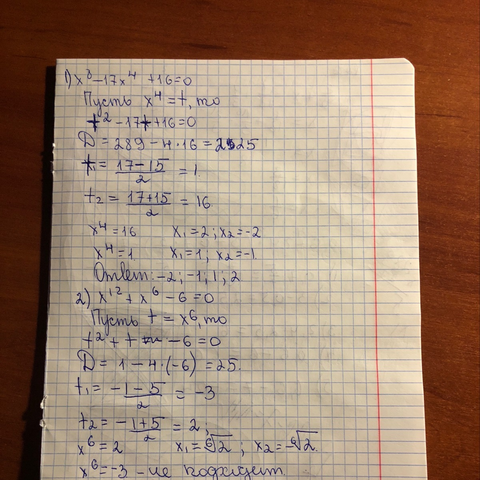 1) x⁸ - 17x⁴ + 16 = 0
Пусть x⁴ = t, то
t² - 17t + 16 = 0
D = 289 - 4·16 = 225
t₁ = (17-15)/2 = 1
t₂ = (17+15)/2 = 16
x⁴ = 16 x₁ = 2; x₂ = -2
x⁴ = 1 x₁ = 1; x₂ = -1
Ответ: -2; -1; 1; 2
2) x¹² + x⁶ - 6 = 0
Пусть t = x⁶, то
t² + t - 6 = 0
D = 1 - 4·(-6) = 25.
t₁ = (-1-5)/2 = -3
t₂ = (-1+5)/2 = 2;
x⁶ = 2 x₁ = ⁶√2; x₂ = -⁶√2.
x⁶ = -3 - не подходит.